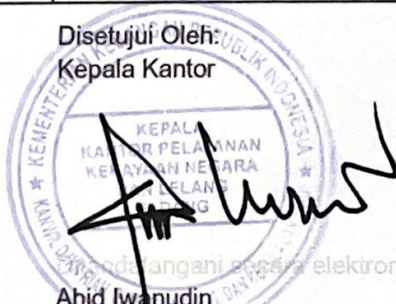 Disetujui Oleh:
Kepala Kantor
KEMENTERIAN KEUANGAN REPUBLIK INDONESIA
KEPALA
KANTOR PELAYANAN
KEKAYAAN NEGARA
DAN LELANG
Ditandatangani secara elektron
Abid Iwanudin